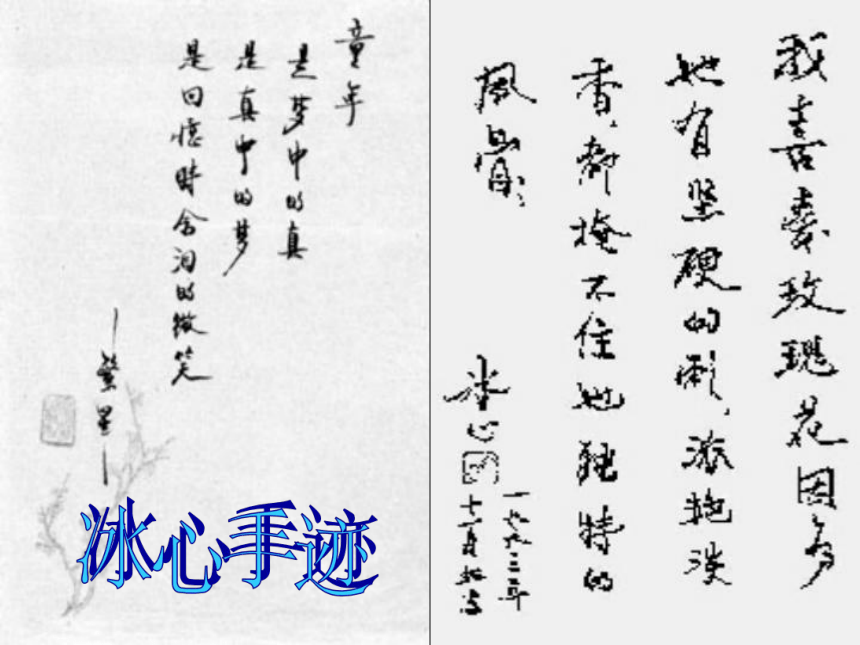 童年
是梦中的真
是真中的梦
是回憶时含泪的微笑
—繁星—
冰心手迹
我喜愛玫瑰花因为
她有坚硬的刺，浓艳淡
香，都掩不住她独特的
風骨，
冰心